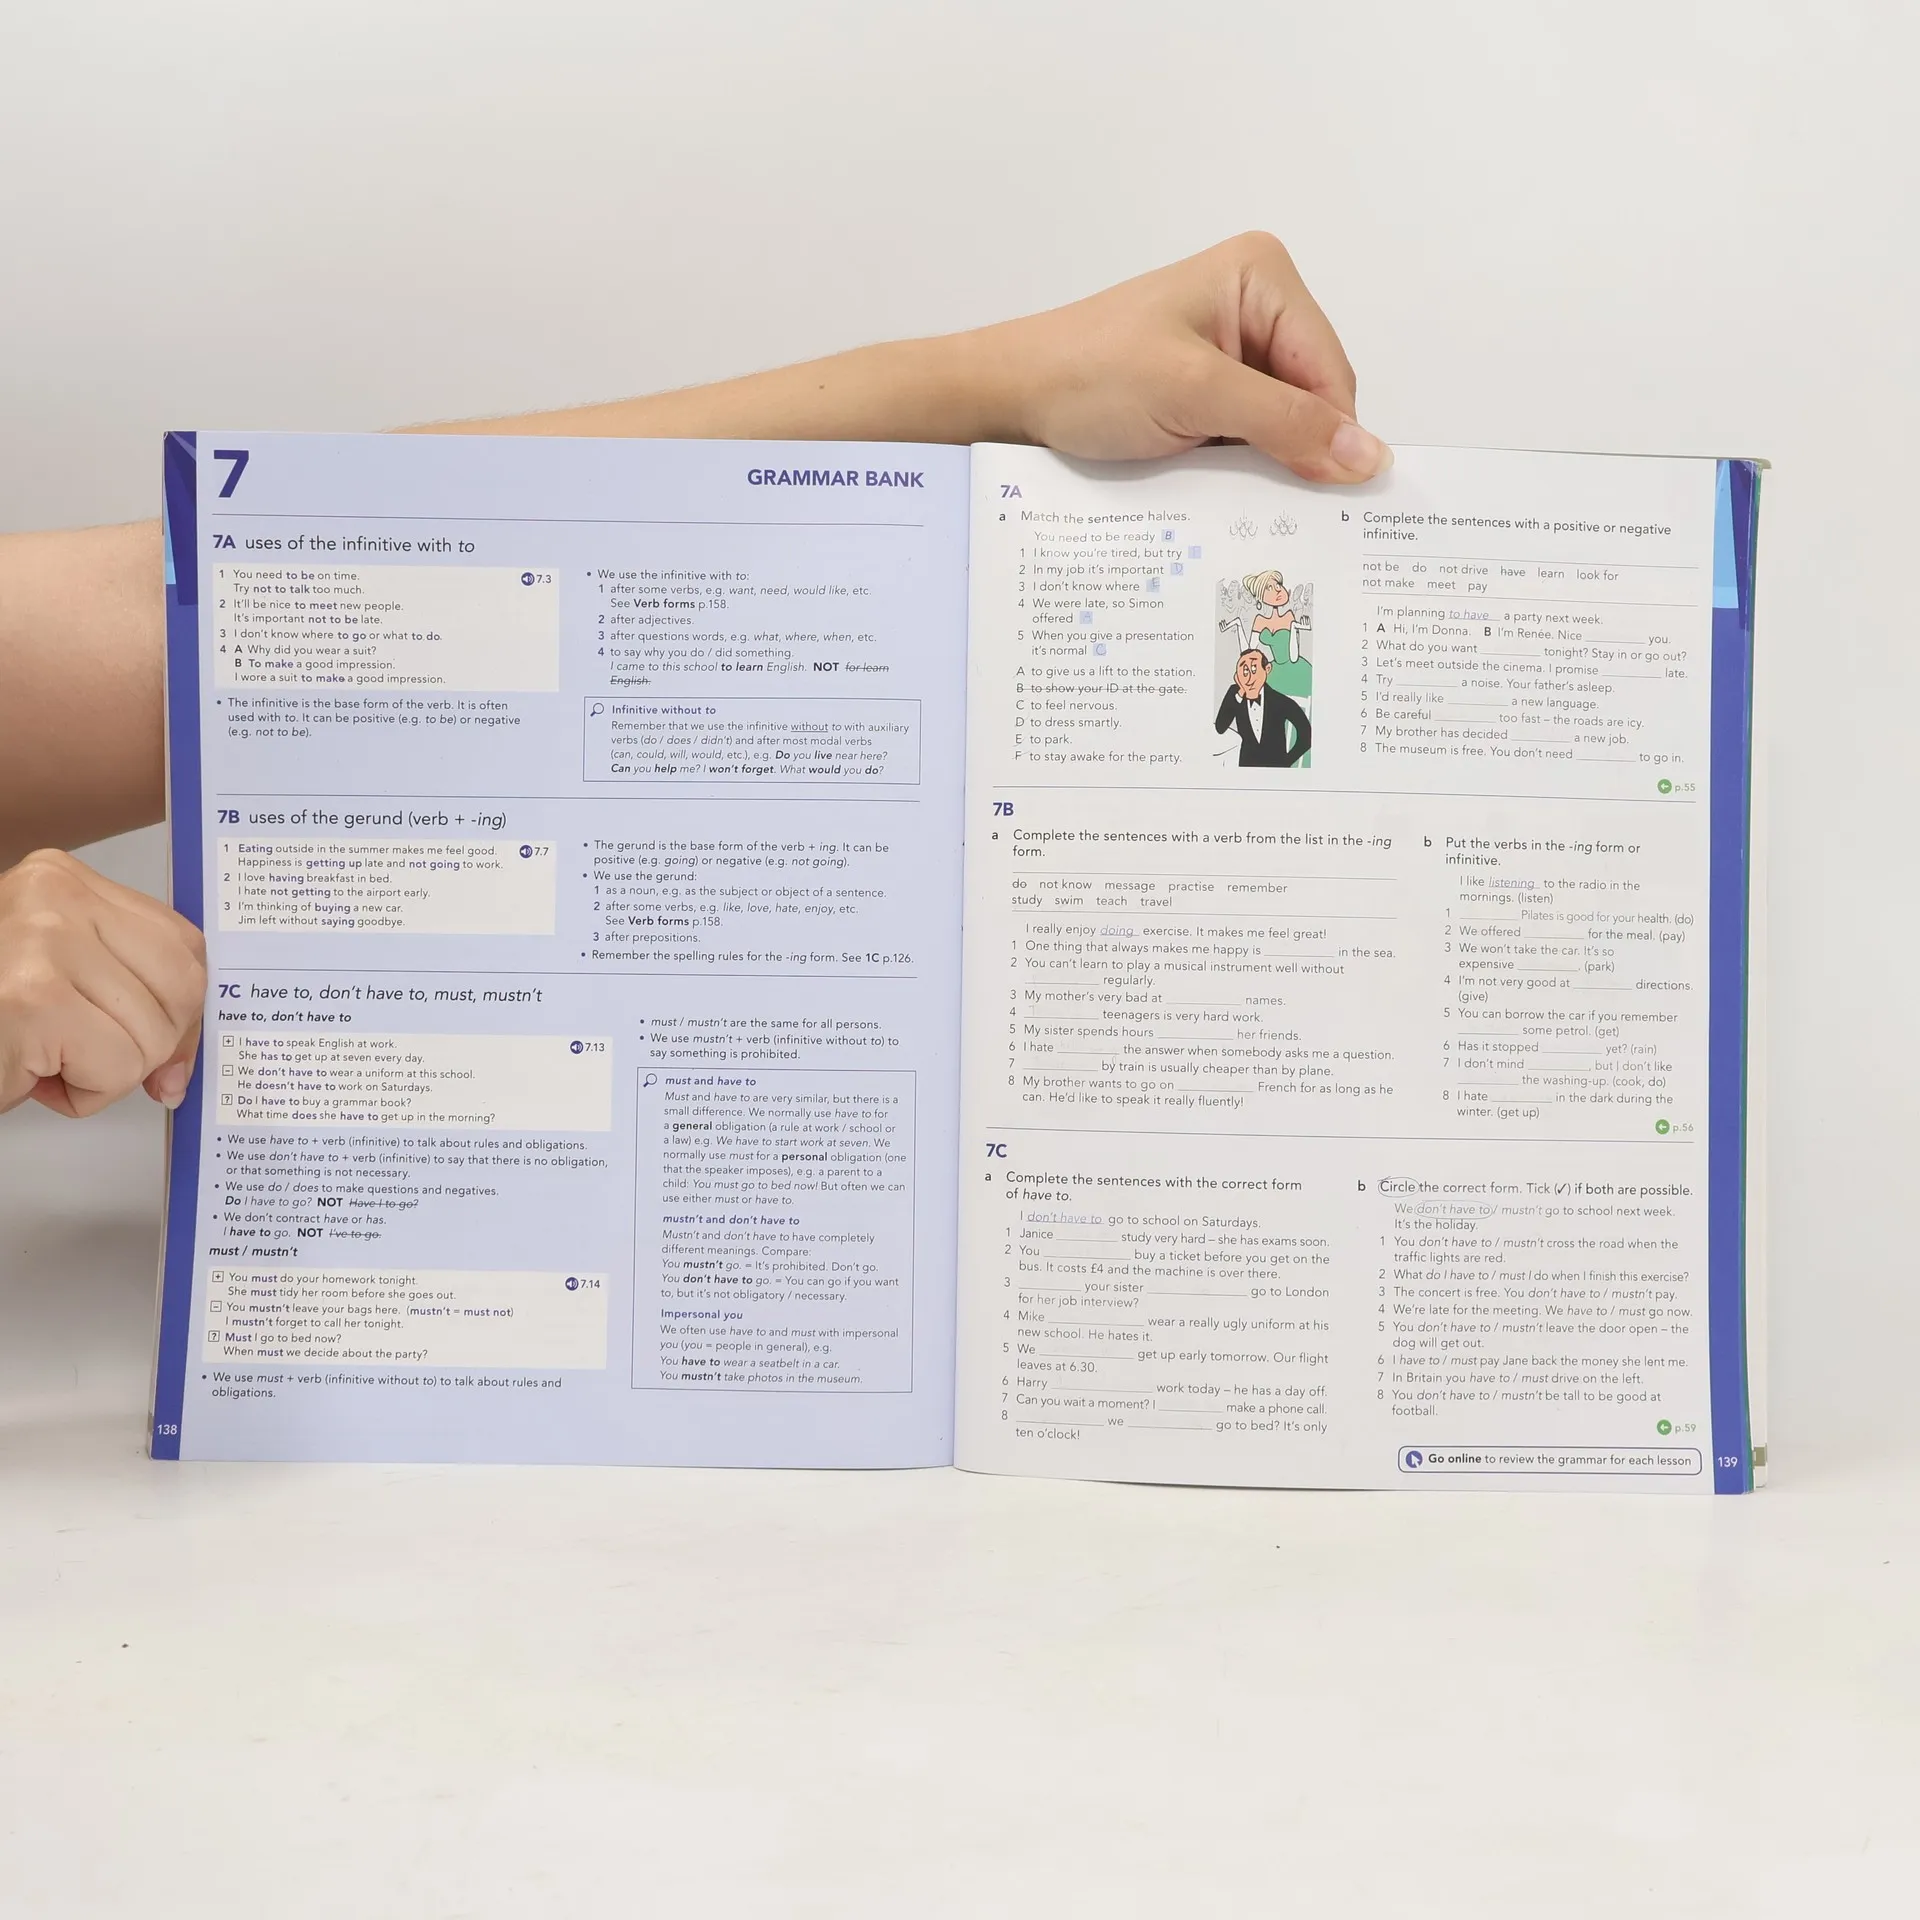 7
GRAMMAR BANK
7A uses of the infinitive with to
1 You need to be on time.
Try not to talk too much.
2 It'll be nice to meet new people.
It's important not to be late.
3 I don't know where to go or what to do.
4 A Why did you wear a suit?
B To make a good impression.
I wore a suit to make a good impression.
7.3
• The infinitive is the base form of the verb. It is often
used with to. It can be positive (e.g. to be) or negative
(e.g. not to be).
• We use the infinitive with to:
1 after some verbs, e.g. want, need, would like, etc.
See Verb forms p.158.
2 after adjectives.
3 after questions words, e.g. what, where, when, etc.
4 to say why you do / did something.
I came to this school to learn English. NOT for learn
English.
Infinitive without to
Remember that we use the infinitive without to with auxiliary
verbs (do / does / didn't) and after most modal verbs
(can, could, will, would, etc.), e.g. Do you live near here?
Can you help me? I won't forget. What would you do?
7B uses of the gerund (verb + -ing)
1 Eating outside in the summer makes me feel good.
Happiness is getting up late and not going to work.
2 I love having breakfast in bed.
I hate not getting to the airport early.
3 I'm thinking of buying a new car.
Jim left without saying goodbye.
7.7
• The gerund is the base form of the verb + ing. It can be
positive (e.g. going) or negative (e.g. not going).
• We use the gerund:
1 as a noun, e.g. as the subject or object of a sentence.
2 after some verbs, e.g. like, love, hate, enjoy, etc.
See Verb forms p.158.
3 after prepositions.
• Remember the spelling rules for the -ing form. See 1C p.126.
7C have to, don't have to, must, mustn't
have to, don't have to
+ I have to speak English at work.
She has to get up at seven every day.
– We don't have to wear a uniform at this school.
He doesn't have to work on Saturdays.
? Do I have to buy a grammar book?
What time does she have to get up in the morning?
7.13
• We use have to + verb (infinitive) to talk about rules and obligations.
• We use don't have to + verb (infinitive) to say that there is no obligation,
or that something is not necessary.
• We use do / does to make questions and negatives.
Do I have to go? NOT Have I to go?
• We don't contract have or has.
I have to go. NOT I've to go.
must / mustn't
+ You must do your homework tonight.
She must tidy her room before she goes out.
– You mustn't leave your bags here. (mustn't = must not)
I mustn't forget to call her tonight.
? Must I go to bed now?
When must we decide about the party?
7.14
• We use must + verb (infinitive without to) to talk about rules and
obligations.
• must / mustn't are the same for all persons.
• We use mustn't + verb (infinitive without to) to
say something is prohibited.
must and have to
Must and have to are very similar, but there is a
small difference. We normally use have to for
a general obligation (a rule at work / school or
a law) e.g. We have to start work at seven. We
normally use must for a personal obligation (one
that the speaker imposes), e.g. a parent to a
child: You must go to bed now! But often we can
use either must or have to.
mustn't and don't have to
Mustn't and don't have to have completely
different meanings. Compare:
You mustn't go. = It's prohibited. Don't go.
You don't have to go. = You can go if you want
to, but it's not obligatory / necessary.
Impersonal you
We often use have to and must with impersonal
you (you = people in general), e.g.
You have to wear a seatbelt in a car.
You mustn't take photos in the museum.
138
7A
a Match the sentence halves.
You need to be ready B
1 I know you're tired, but try
2 In my job it's important D
3 I don't know where E
4 We were late, so Simon
offered A
5 When you give a presentation
it's normal C
A to give us a lift to the station.
B to show your ID at the gate.
C to feel nervous.
D to dress smartly.
E to park.
F to stay awake for the party.
b Complete the sentences with a positive or negative
infinitive.
not be do not drive have learn look for
not make meet pay
I'm planning to have a party next week.
1 A Hi, I'm Donna. B I'm Renée. Nice ______ you.
2 What do you want ______ tonight? Stay in or go out?
3 Let's meet outside the cinema. I promise ______ late.
4 Try ______ a noise. Your father's asleep.
5 I'd really like ______ a new language.
6 Be careful ______ too fast – the roads are icy.
7 My brother has decided ______ a new job.
8 The museum is free. You don't need ______ to go in.
p.55
7B
a Complete the sentences with a verb from the list in the -ing
form.
do not know message practise remember
study swim teach travel
I really enjoy doing exercise. It makes me feel great!
1 One thing that always makes me happy is ______ in the sea.
2 You can't learn to play a musical instrument well without
______ regularly.
3 My mother's very bad at ______ names.
4 ______ teenagers is very hard work.
5 My sister spends hours ______ her friends.
6 I hate ______ the answer when somebody asks me a question.
7 ______ by train is usually cheaper than by plane.
8 My brother wants to go on ______ French for as long as he
can. He'd like to speak it really fluently!
b Put the verbs in the -ing form or
infinitive.
I like listening to the radio in the
mornings. (listen)
1 ______ Pilates is good for your health. (do)
2 We offered ______ for the meal. (pay)
3 We won't take the car. It's so
expensive ______. (park)
4 I'm not very good at ______ directions.
(give)
5 You can borrow the car if you remember
______ some petrol. (get)
6 Has it stopped ______ yet? (rain)
7 I don't mind ______, but I don't like
______ the washing-up. (cook, do)
8 I hate ______ in the dark during the
winter. (get up)
p.56
7C
a Complete the sentences with the correct form
of have to.
I don't have to go to school on Saturdays.
1 Janice ______ study very hard – she has exams soon.
2 You ______ buy a ticket before you get on the
bus. It costs £4 and the machine is over there.
3 ______ your sister ______ go to London
for her job interview?
4 Mike ______ wear a really ugly uniform at his
new school. He hates it.
5 We ______ get up early tomorrow. Our flight
leaves at 6.30.
6 Harry ______ work today – he has a day off.
7 Can you wait a moment? I ______ make a phone call.
8 ______ we ______ go to bed? It's only
ten o'clock!
b Circle the correct form. Tick (✓) if both are possible.
We don't have to / mustn't go to school next week.
It's the holiday.
1 You don't have to / mustn't cross the road when the
traffic lights are red.
2 What do I have to / must I do when I finish this exercise?
3 The concert is free. You don't have to / mustn't pay.
4 We're late for the meeting. We have to / must go now.
5 You don't have to / mustn't leave the door open – the
dog will get out.
6 I have to / must pay Jane back the money she lent me.
7 In Britain you have to / must drive on the left.
8 You don't have to / mustn't be tall to be good at
football.
p.59
Go online to review the grammar for each lesson
139